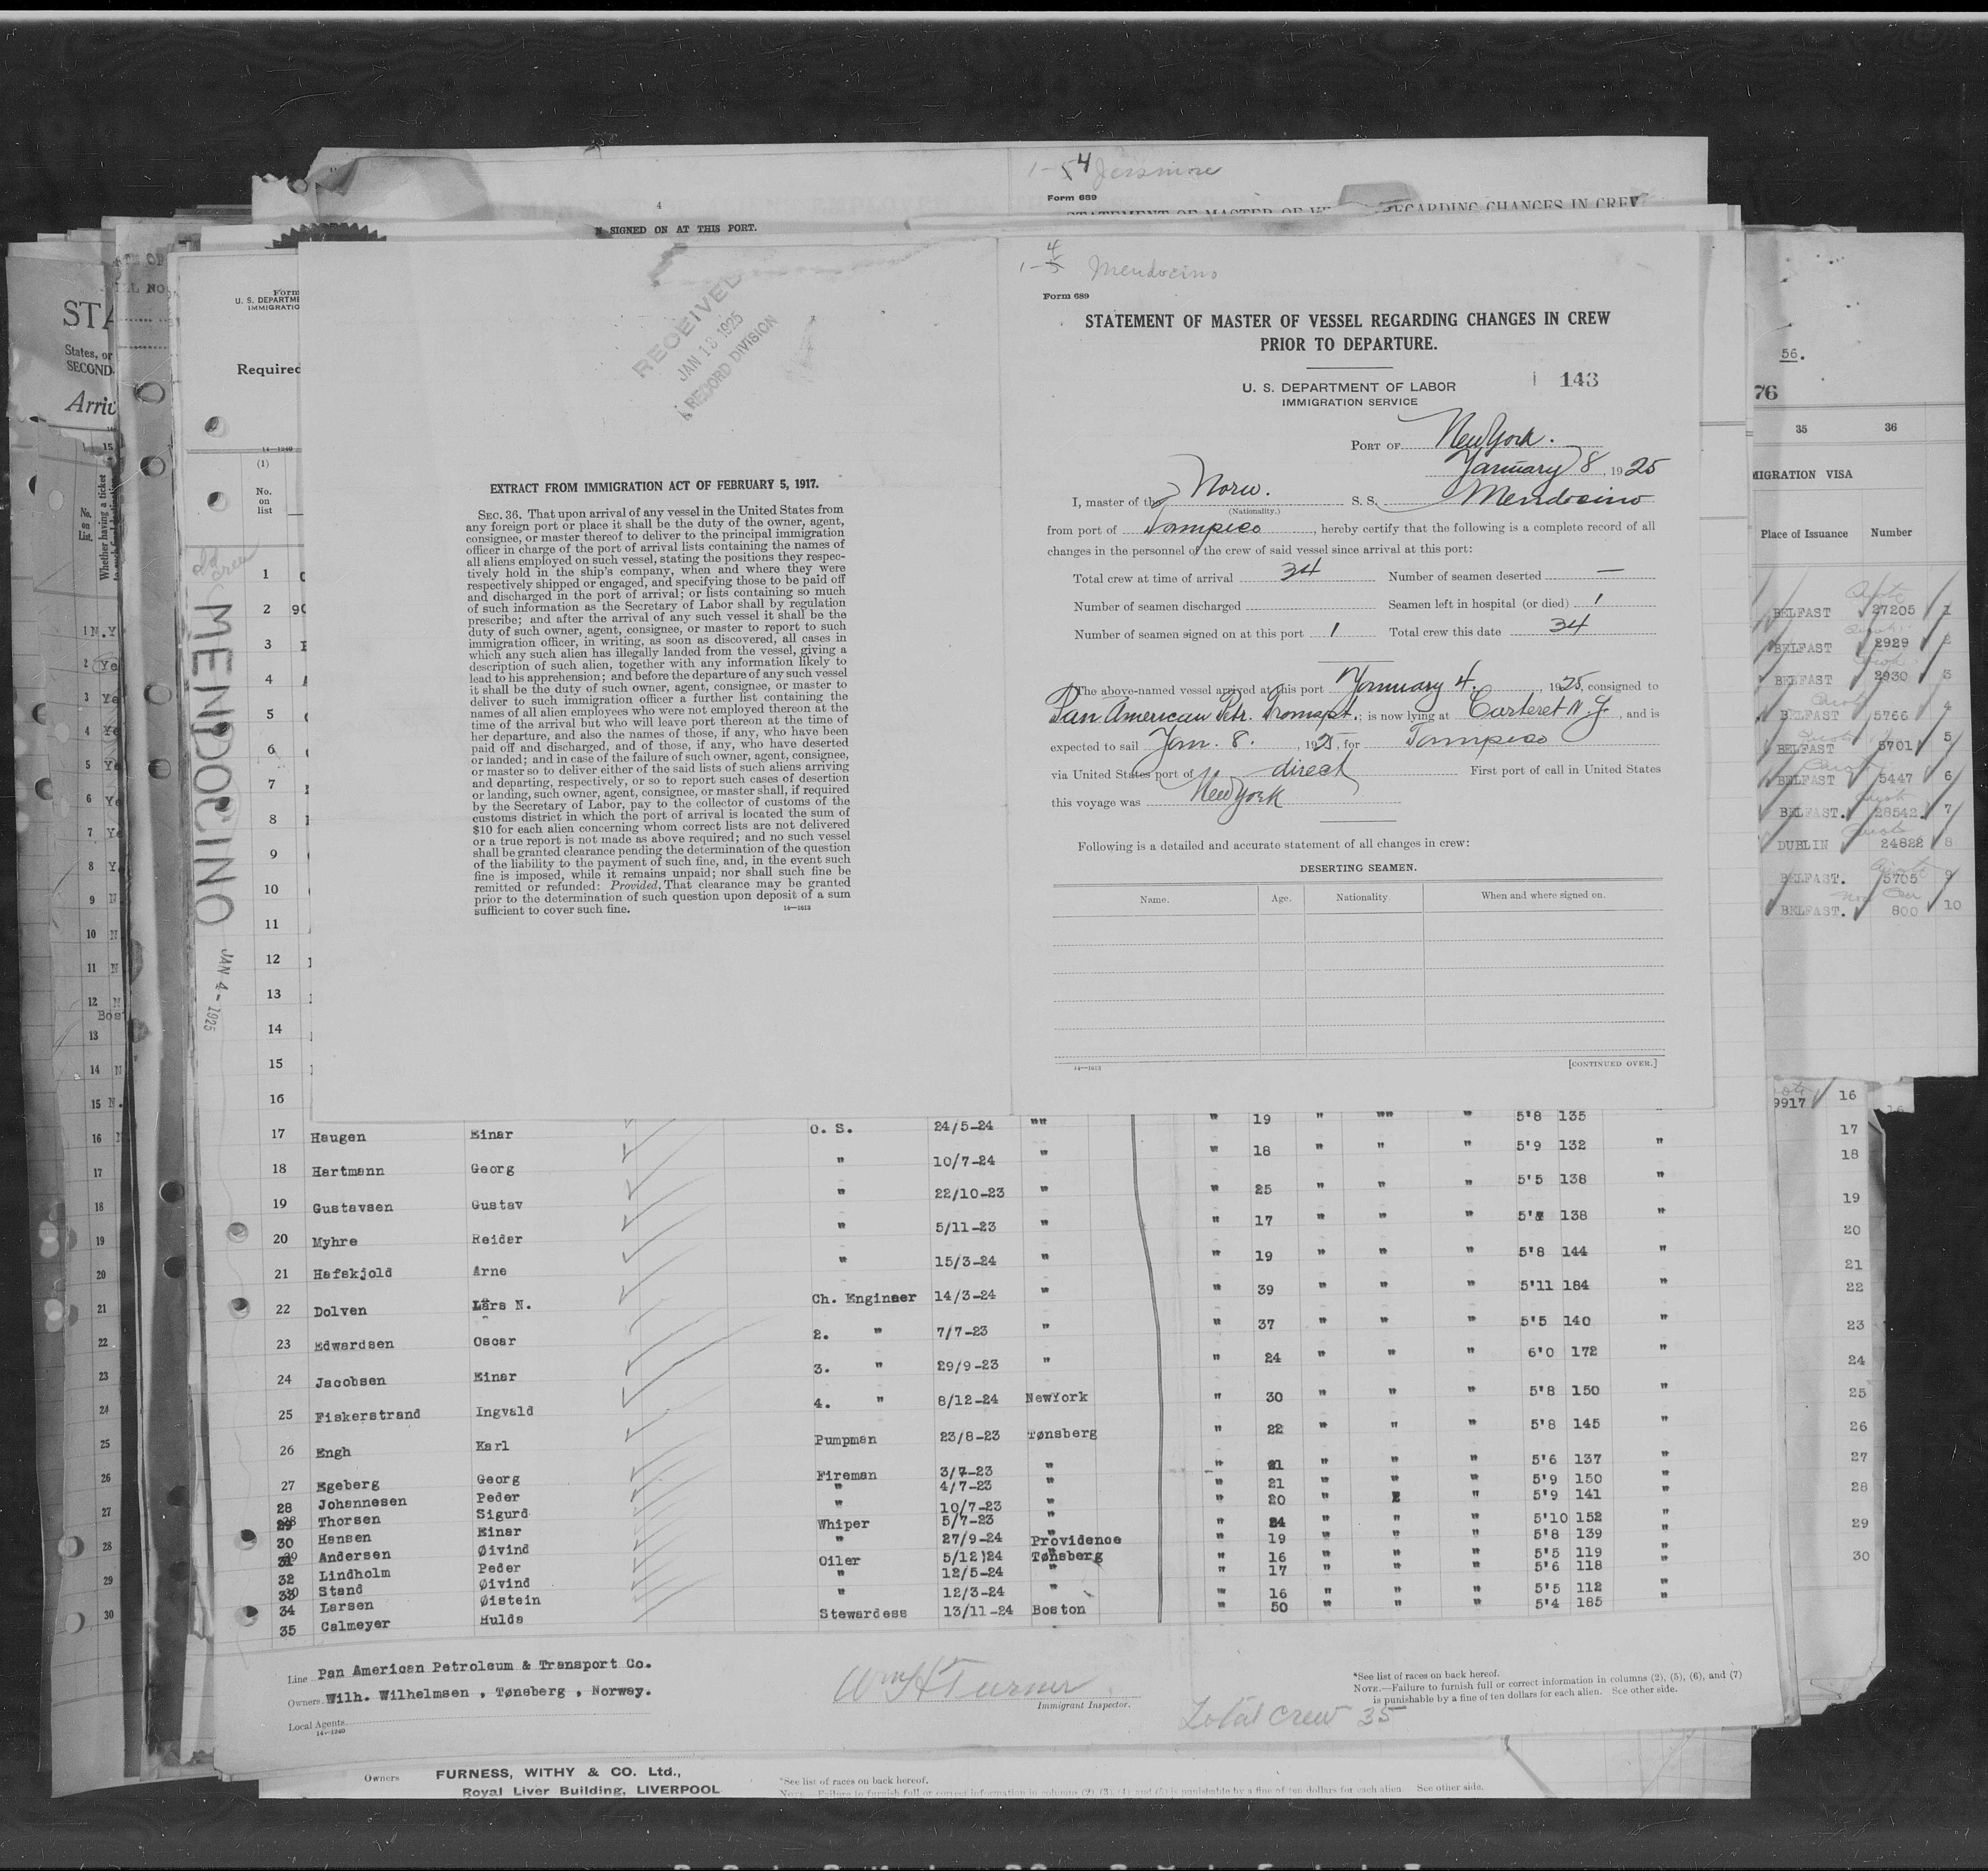 1-4 Jessmore
Form 689
4
SIGNED ON AT THIS PORT.
RECEIVED
JAN 13 1925
RECORD DIVISION
EXTRACT FROM IMMIGRATION ACT OF FEBRUARY 5, 1917.
SEC. 36. That upon arrival of any vessel in the United States from
any foreign port or place it shall be the duty of the owner, agent,
consignee, or master thereof to deliver to the principal immigration
officer in charge of the port of arrival lists containing the names of
all aliens employed on such vessel, stating the positions they respec-
tively hold in the ship's company, when and where they were
respectively shipped or engaged, and specifying those to be paid off
and discharged in the port of arrival; or lists containing so much
of such information as the Secretary of Labor shall by regulation
prescribe; and after the arrival of any such vessel it shall be the
duty of such owner, agent, consignee, or master to report to such
immigration officer, in writing, as soon as discovered, all cases in
which any such alien has illegally landed from the vessel, giving a
description of such alien, together with any information likely to
lead to his apprehension; and before the departure of any such vessel
it shall be the duty of such owner, agent, consignee, or master to
deliver to such immigration officer a further list containing the
names of all alien employees who were not employed thereon at the
time of the arrival but who will leave port thereon at the time of
her departure, and also the names of those, if any, who have been
paid off and discharged, and of those, if any, who have deserted
or landed; and in case of the failure of such owner, agent, consignee,
or master so to deliver either of the said lists of such aliens arriving
and departing, respectively, or so to report such cases of desertion
or landing, such owner, agent, consignee, or master shall, if required
by the Secretary of Labor, pay to the collector of customs of the
customs district in which the port of arrival is located the sum of
$10 for each alien concerning whom correct lists are not delivered
or a true report is not made as above required; and no such vessel
shall be granted clearance pending the determination of the question
of the liability to the payment of such fine, and, in the event such
fine is imposed, while it remains unpaid; nor shall such fine be
remitted or refunded: Provided, That clearance may be granted
prior to the determination of such question upon deposit of a sum
sufficient to cover such fine. 14—1613
1-4 Mendocino
Form 689
STATEMENT OF MASTER OF VESSEL REGARDING CHANGES IN CREW
PRIOR TO DEPARTURE.
U. S. DEPARTMENT OF LABOR
IMMIGRATION SERVICE
143
PORT OF New York.
January 8, 1925
I, master of the Norw. S. S. Mendocino
(Nationality.)
from port of Tampico, hereby certify that the following is a complete record of all
changes in the personnel of the crew of said vessel since arrival at this port:
Total crew at time of arrival 34 Number of seamen deserted —
Number of seamen discharged Seamen left in hospital (or died) 1
Number of seamen signed on at this port 1 Total crew this date 34
The above-named vessel arrived at this port January 4, 1925, consigned to
Pan American Petr. Transpt.; is now lying at Carteret N.J., and is
expected to sail Jan. 8., 1925, for Tampico
via United States port of direct First port of call in United States
this voyage was New York
Following is a detailed and accurate statement of all changes in crew:
DESERTING SEAMEN.
Name. Age. Nationality. When and where signed on.
14—1613 [CONTINUED OVER.]
MENDOCINO JAN 4 - 1925
U. S. DEPARTME
IMMIGRATIO
Required
14—1240
(1)
No.
on
list
1
2
3
4
5
6
7
8
9
10
11
12
13
14
15
16
19 " "" " 5'8 135
17 Haugen Einar O. S. 24/5-24 "" " 18 " " " 5'9 132 "
18 Hartmann Georg " 10/7-24 " " 25 " " " 5'5 138 "
19 Gustavsen Gustav " 22/10-23 " " 17 " " " 138 "
20 Myhre Reidar " 5/11-23 " " 19 " " " 5'8 144 "
21 Hafskjold Arne " 15/3-24 " " 39 " " " 5'11 184 "
22 Dolven Lars N. Ch. Engineer 14/3-24 " " 37 " " " 5'5 140 "
23 Edwardsen Oscar 2. " 7/7-23 " " 24 " " " 6'0 172 "
24 Jacobsen Einar 3. " 29/9-23 " " 30 " " " 5'8 150 "
25 Fiskerstrand Ingvald 4. " 8/12-24 NewYork " 22 " " " 5'8 145 "
26 Engh Karl Pumpman 23/8-23 Tønsberg " 21 " " " 5'6 137 "
27 Egeberg Georg Fireman 3/7-23 " " 21 " " " 5'9 150 "
28 Johannesen Peder " 4/7-23 " " 20 " " 5'9 141 "
29 Thorsen Sigurd " 10/7-23 " " 24 " " " 5'10 152 "
30 Hansen Einar Whiper 5/7-23 " " 19 " " " 5'8 139 "
31 Andersen Øivind " 27/9-24 Providence " 16 " " " 5'5 119 "
32 Lindholm Peder Oiler 5/12)24 Tønsberg " 17 " " " 5'6 118 "
33 Stand Øivind " 12/5-24 "
34 Larsen Øistein " 12/3-24 " " 16 " " " 5'5 112 "
35 Calmeyer Hulda Stewardess 13/11-24 Boston " 50 " " " 5'4 185 "
Line Pan American Petroleum & Transport Co.
Owners Wilh. Wilhelmsen, Tønsberg, Norway.
Local Agents
14—1240
Wm H Turner
Immigrant Inspector.
Total crew 35
*See list of races on back hereof.
NOTE.—Failure to furnish full or correct information in columns (2), (5), (6), and (7)
is punishable by a fine of ten dollars for each alien. See other side.
Owners FURNESS, WITHY & CO. Ltd.,
Royal Liver Building, LIVERPOOL
*See list of races on back hereof.
NOTE.—Failure to furnish full or correct information in columns (2), (3), (4) and (5) is punishable by a fine of ten dollars for each alien. See other side.
56.
76
35 36
MIGRATION VISA
Place of Issuance Number
BELFAST 27205 1
BELFAST 2929 2
BELFAST 2930 3
BELFAST 5766 4
BELFAST 5701 5
BELFAST 5447 6
BELFAST. 28542 7
DUBLIN 24822 8
BELFAST. 5705 9
BELFAST. 800 10
9917 16
17
18
19
20
21
22
23
24
25
26
27
28
29
30